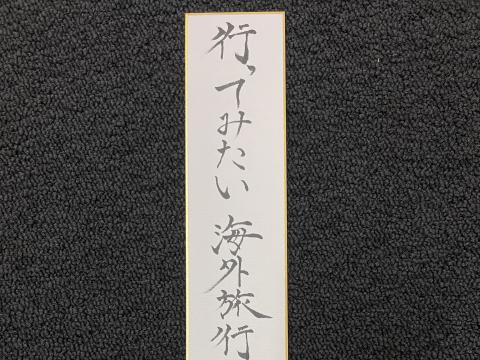 行ってみたい 海外旅行